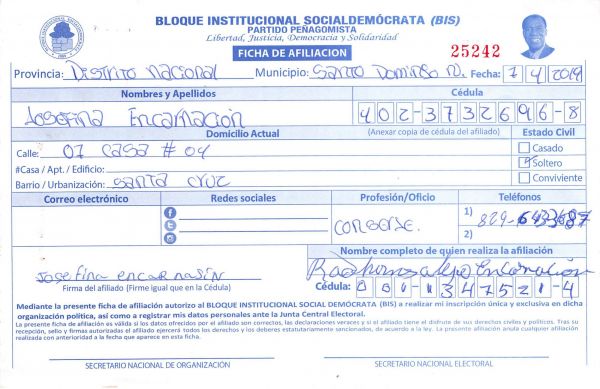 BLOQUE INSTITUCIONAL SOCIALDEMÓCRATA (BIS)
PARTIDO PEÑAGOMISTA
Libertad, Justicia, Democracia y Solidaridad
FICHA DE AFILIACION
25242
Provincia: Distrito Nacional Municipio: Santo Domingo N. Fecha: 7/4/2019
Nombres y Apellidos Cédula
Josefina Encarnación 402-3732696-8
Domicilio Actual (Anexar copia de cédula del afiliado) Estado Civil
Calle: 07 casa # 04 Casado
#Casa / Apt. / Edificio: Soltero
Barrio / Urbanización: Santa cruz Conviviente
Correo electrónico Redes sociales Profesión/Oficio Teléfonos
conserje. 1) 829-6433687
2)
Nombre completo de quien realiza la afiliación
Josefina encarnasin Encarnación
Firma del afiliado (Firme igual que en la Cédula) Cédula: 001-1347521-4
Mediante la presente ficha de afiliación autorizo al BLOQUE INSTITUCIONAL SOCIAL DEMÓCRATA (BIS) a realizar mi inscripción única y exclusiva en dicha
organización política, así como a registrar mis datos personales ante la Junta Central Electoral.
La presente ficha de afiliación es válida si los datos ofrecidos por el afiliado son correctos, las declaraciones veraces y si el afiliado tiene el disfrute de sus derechos civiles y políticos. Tras su
recepción, sello y firmas autorizadas el afiliado ejercerá todos los derechos y los deberes estatutariamente sancionados, de acuerdo a la ley. La presente afiliación anula cualquier afiliación
realizada con anterioridad a la fecha que aparece en esta ficha.
SECRETARIO NACIONAL DE ORGANIZACIÓN SECRETARIO NACIONAL ELECTORAL